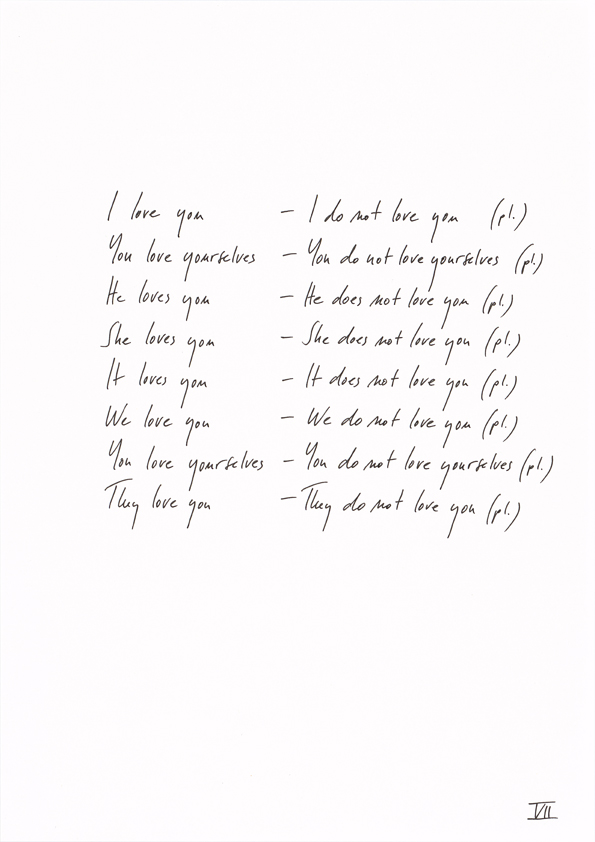 I love you — I do not love you (pl.)
You love yourselves — You do not love yourselves (pl.)
He loves you — He does not love you (pl.)
She loves you — She does not love you (pl.)
It loves you — It does not love you (pl.)
We love you — We do not love you (pl.)
You love yourselves — You do not love yourselves (pl.)
They love you — They do not love you (pl.)
VII